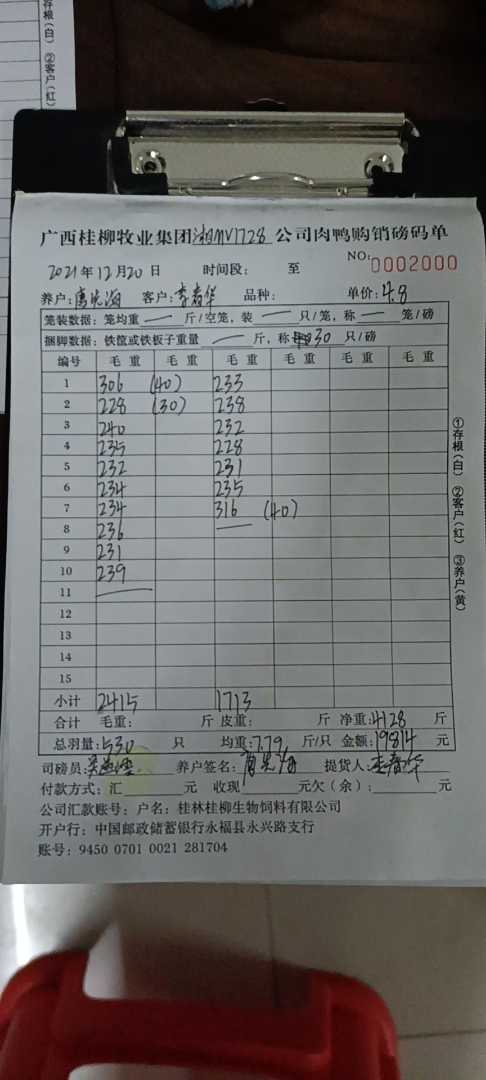 存根(白) ②客户(红)
广西桂柳牧业集团湘NV1728公司肉鸭购销磅码单
2021年12月20日 时间段: 至 NO: 0002000
养户: 客户:李春华 品种: 单价:4.8
笼装数据: 笼均重 — 斤/空笼, 装 — 只/笼, 称 — 笼/磅
捆脚数据: 铁筐或铁板子重量 — 斤, 称 30 只/磅
编号 毛重 毛重 毛重 毛重 毛重 毛重
1 306 (40) 233
2 228 (30) 238
3 240 232
4 235 228
5 232 231
6 234 235
7 234 316 (40)
8 236 —
9 231
10 239
11 —
12
13
14
15
小计 2415 1713
合计 毛重: 斤 皮重: 斤 净重:4128 斤
总羽量:530 只 均重:7.79 斤/只 金额:19814 元
司磅员: 养户签名: 提货人:李春华
付款方式: 汇 元 收现 元欠(余): 元
公司汇款账号: 户名: 桂林桂柳生物饲料有限公司
开户行: 中国邮政储蓄银行永福县永兴路支行
账号: 9450 0701 0021 281704
①存根(白) ②客户(红) ③养户(黄)